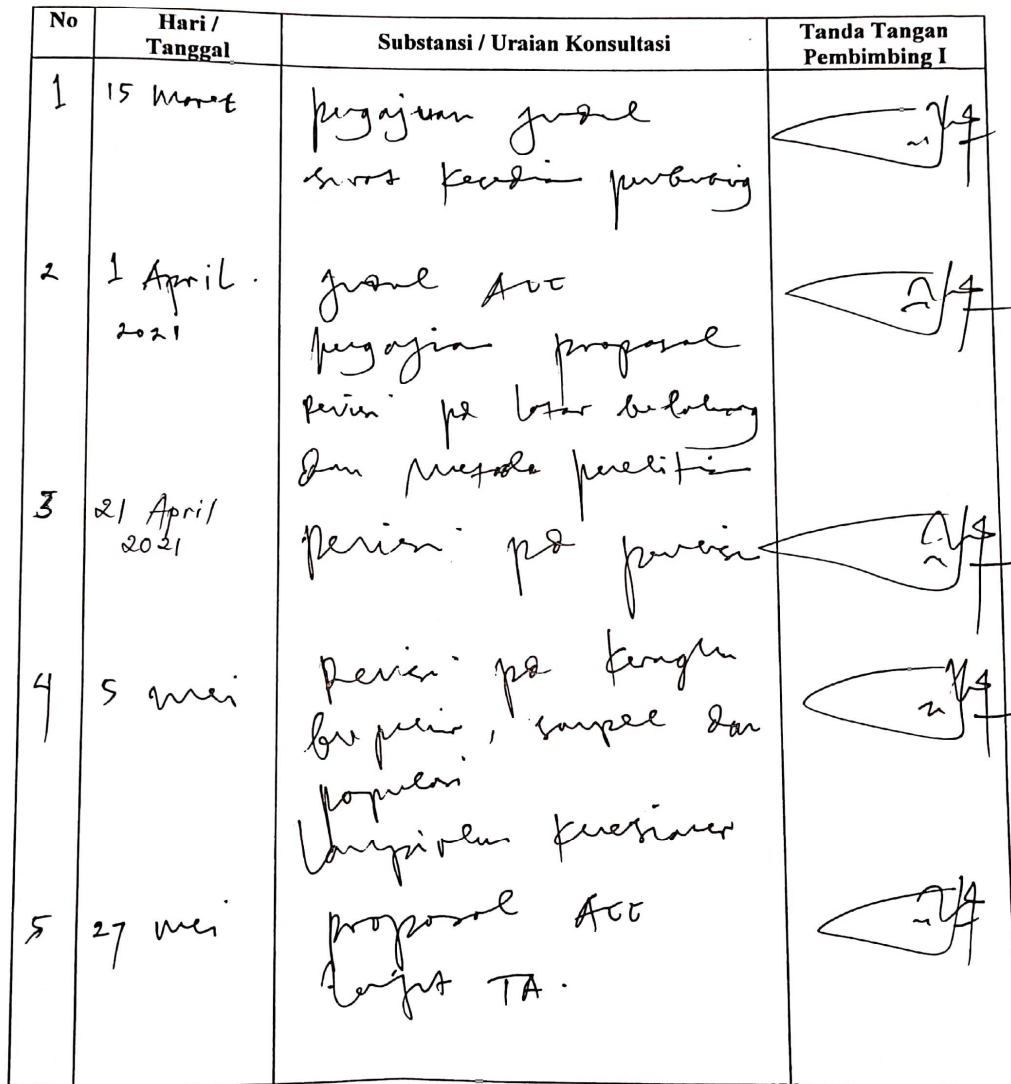 No Hari / Tanggal Substansi / Uraian Konsultasi Tanda Tangan Pembimbing I
1 15 Maret pengajuan judul
surat kesedian pembimbing
2 1 April 2021 judul ACC
pengajian proposal
revisi pd latar belakang
dan metode penelitian
3 21 April 2021 revisi pd
4 5 mei Revisi pd kerangka
berpikir, sampel dan
populasi
Lampirkan kuesioner
5 27 mei proposal ACC
lanjut TA.